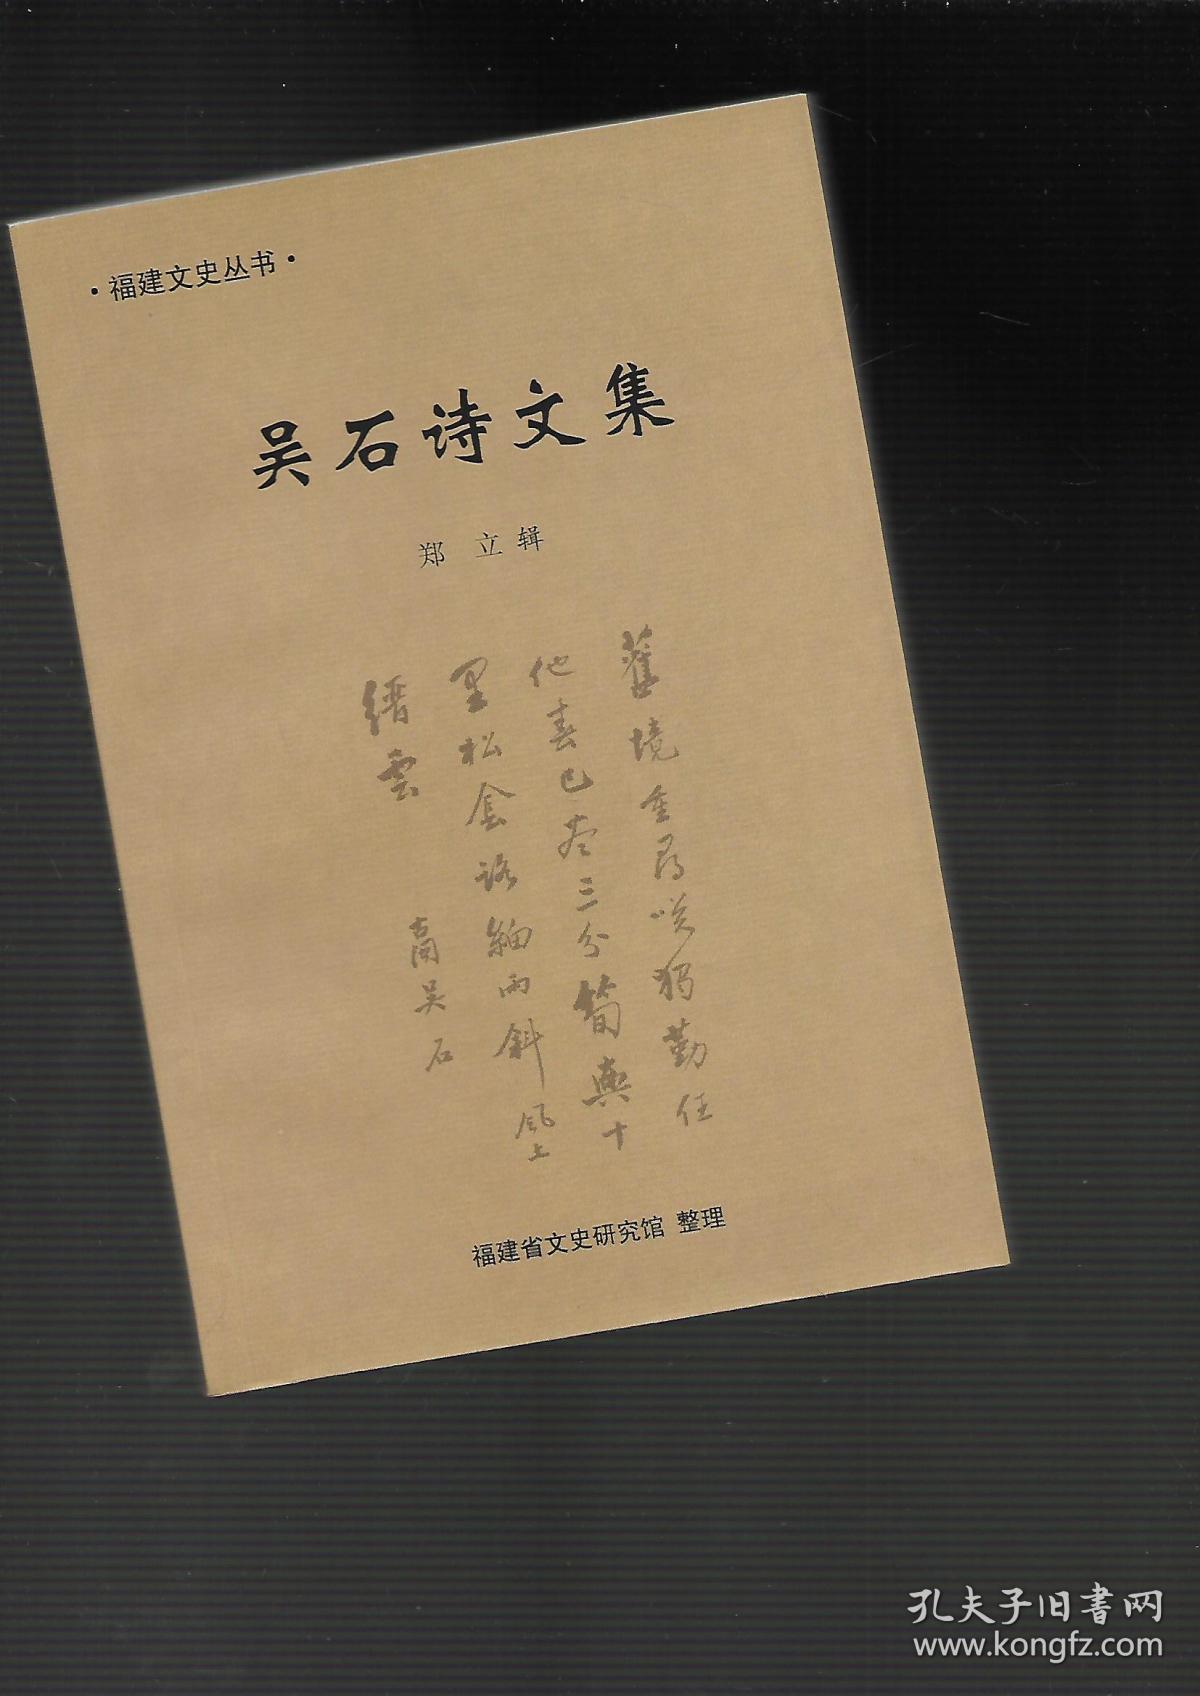 ·福建文史丛书·
吴石诗文集
郑立辑
舊境重尋咲獨勤任
他春已三分筍輿十
里松陰路細雨斜風上
縉雲
吴石
福建省文史研究馆 整理
孔夫子旧書网
www.kongfz.com